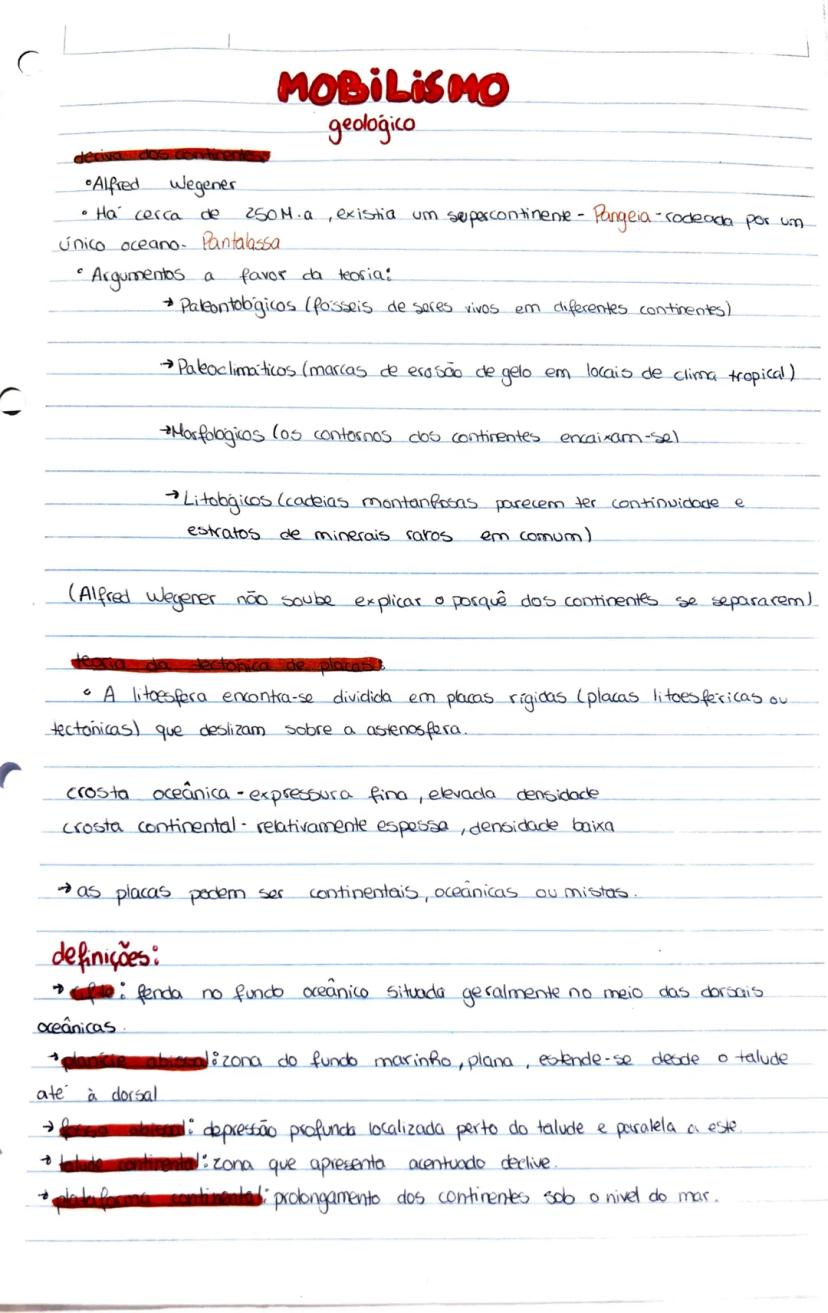 MOBILISMO
geológico
deriva dos continentes
• Alfred Wegener
• Há cerca de 250 M.a, existia um supercontinente - Pangeia - rodeada por um
único oceano - Pantalassa
• Argumentos a favor da teoria:
→ Paleontológicos (fósseis de seres vivos em diferentes continentes)
→ Paleoclimáticos (marcas de erosão de gelo em locais de clima tropical)
→ Morfológicos (os contornos dos continentes encaixam-se)
→ Litológicos (cadeias montanhosas parecem ter continuidade e
estratos de minerais raros em comum)
(Alfred Wegener não soube explicar o porquê dos continentes se separarem)
teoria da tectónica de placas:
• A litoesfera encontra-se dividida em placas rígidas (placas litoesféricas ou
tectónicas) que deslizam sobre a astenosfera.
crosta oceânica - expressura fina, elevada densidade
crosta continental - relativamente espessa, densidade baixa
→ as placas podem ser continentais, oceânicas ou mistas.
definições:
→ rifte: fenda no fundo oceânico situada geralmente no meio das dorsais
oceânicas.
→ planície abissal: zona do fundo marinho, plana, estende-se desde o talude
até à dorsal
→ fossa abissal: depressão profunda localizada perto do talude e paralela a este.
→ talude continental: zona que apresenta acentuado declive.
→ plataforma continental: prolongamento dos continentes sob o nível do mar.